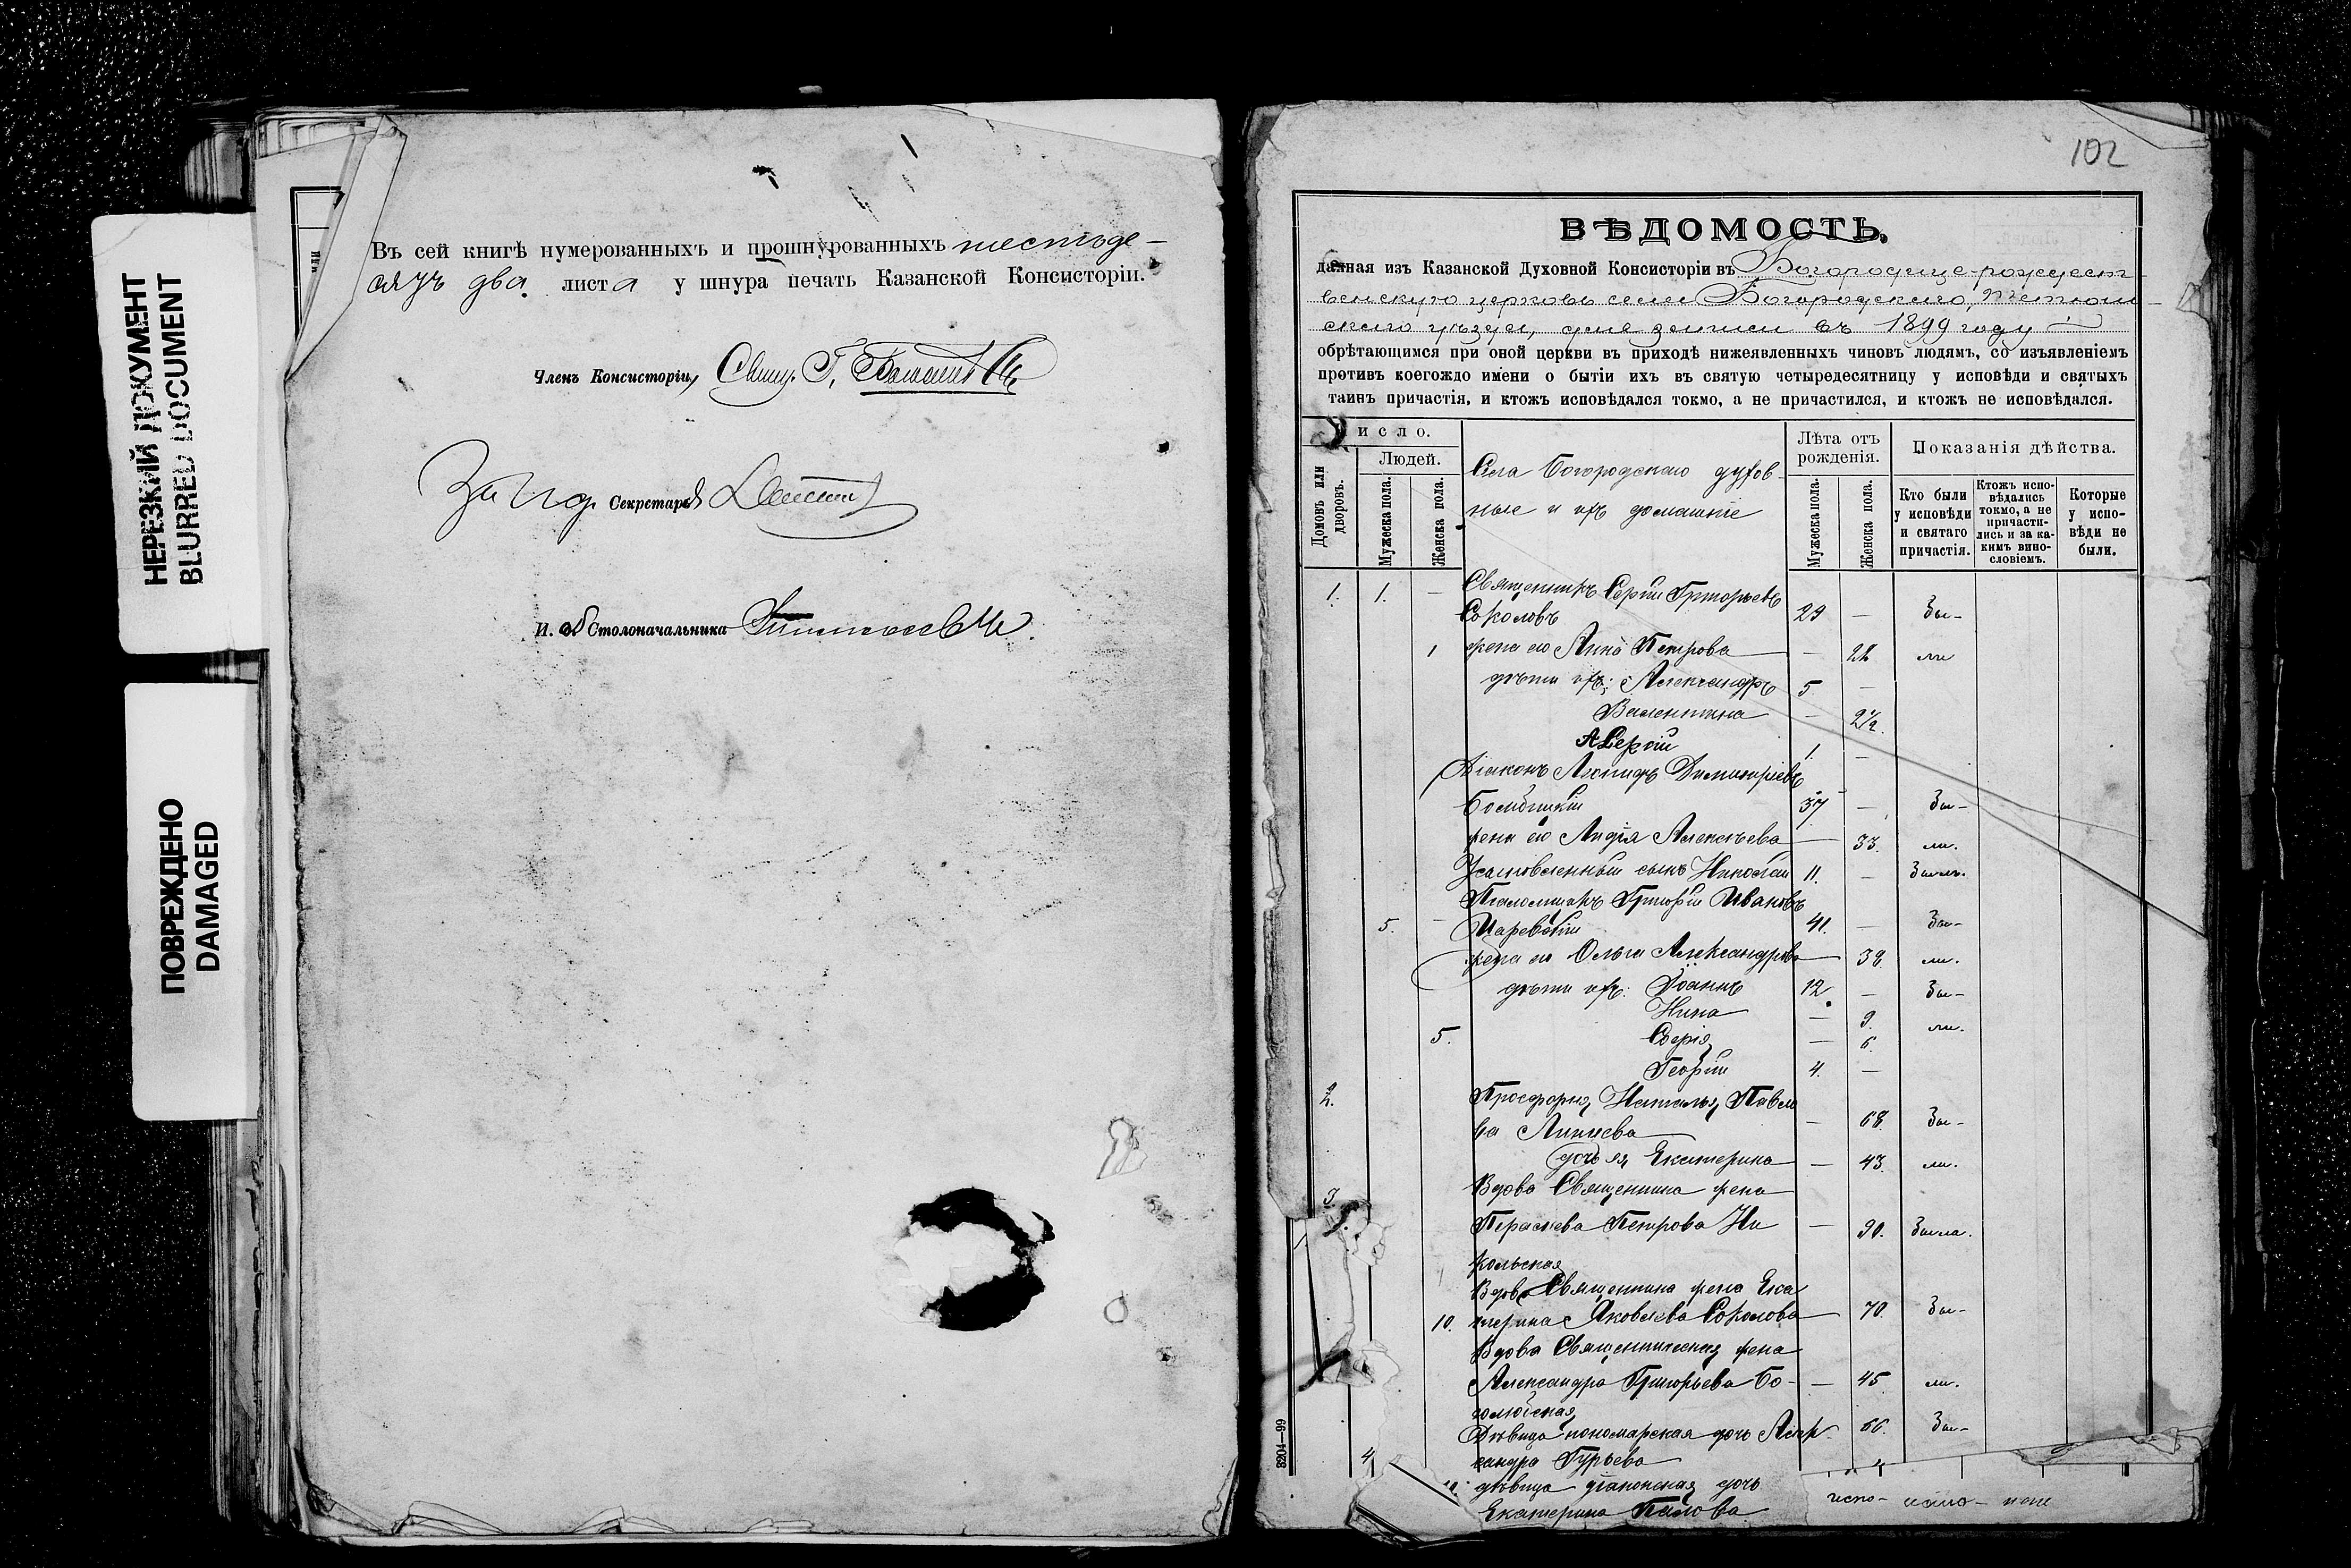 НЕРЕЗКИЙ ДОКУМЕНТ
BLURRED DOCUMENT
ПОВРЕЖДЕНО
DAMAGED
или
Въ сей книгѣ нумерованныхъ и прошнурованныхъ шестьде-
сятъ два листа у шнура печать Казанской Консисторіи.
Членъ Консисторіи, Свящ. Г.
За Секретаря
И. об Столоначальника
102
ВѢДОМОСТЬ,
данная изъ Казанской Духовной Консисторіи въ Богородице-рождест-
венскую церковь села Богородскаго, Тетюш-
скаго уѣзда, для записи въ 1899 году
обрѣтающимся при оной церкви въ приходѣ нижеявленныхъ чиновъ людямъ, со изъявленіемъ
противъ коегождо имени о бытіи ихъ въ святую четыредесятницу у исповѣди и святыхъ
таинъ причастія, и ктожъ исповѣдался токмо, а не причастился, и ктожъ не исповѣдался.
Число.
Людей.
Домовъ или дворовъ.
Мужеска пола.
Женска пола.
Села Богородскаго духов-
ные и ихъ домашніе
Лѣта отъ рожденія.
Мужеска пола.
Женска пола.
Показанія дѣйства.
Кто были у исповѣди и святаго причастія.
Ктожъ испо-вѣдались токмо, а не причасти-лись и за ка-кимъ вино-словіемъ.
Которые у испо-вѣди не были.
1. 1. — Священникъ Сергій Григорьевъ
Соколовъ 29 — Бы-
1 жена его Анна Петрова — 28 ли
дѣти ихъ: Александръ 5 —
Валентина — 2½.
Сергій 1 —
Діаконъ Леонидъ Димитріевъ
37 — Бы-
жена его Лидія Алексѣева — 33. ли.
Усыновленный сынъ Николай 11. — Былъ.
Псаломщикъ Григорій Ивановъ
5. — Царевскій 41. — Бы-
жена его Ольга Александрова — 38. ли.
дѣти ихъ: Іоаннъ 12 — Бы-
Нина — 9. ли.
5. Софія — 6.
Георгій 4. —
2. Просфорня Наталья Павло
ва — 68. Бы-
дочь ея Екатерина — 43. ли.
3 Вдова Священника жена
Параскева Петрова Ни — 90. Была.
кольская
Вдова Священника жена Ека
10. терина Яковлева Соколова 70. Бы-
Вдова Священническая жена
Александра Григорьева Бо- — 45 ли.
голюбская
Дѣвица пономарская дочь Алек 66. Бы-
4 сандра Гурьева
дѣвица діаконская дочь
Екатерина
3204—99